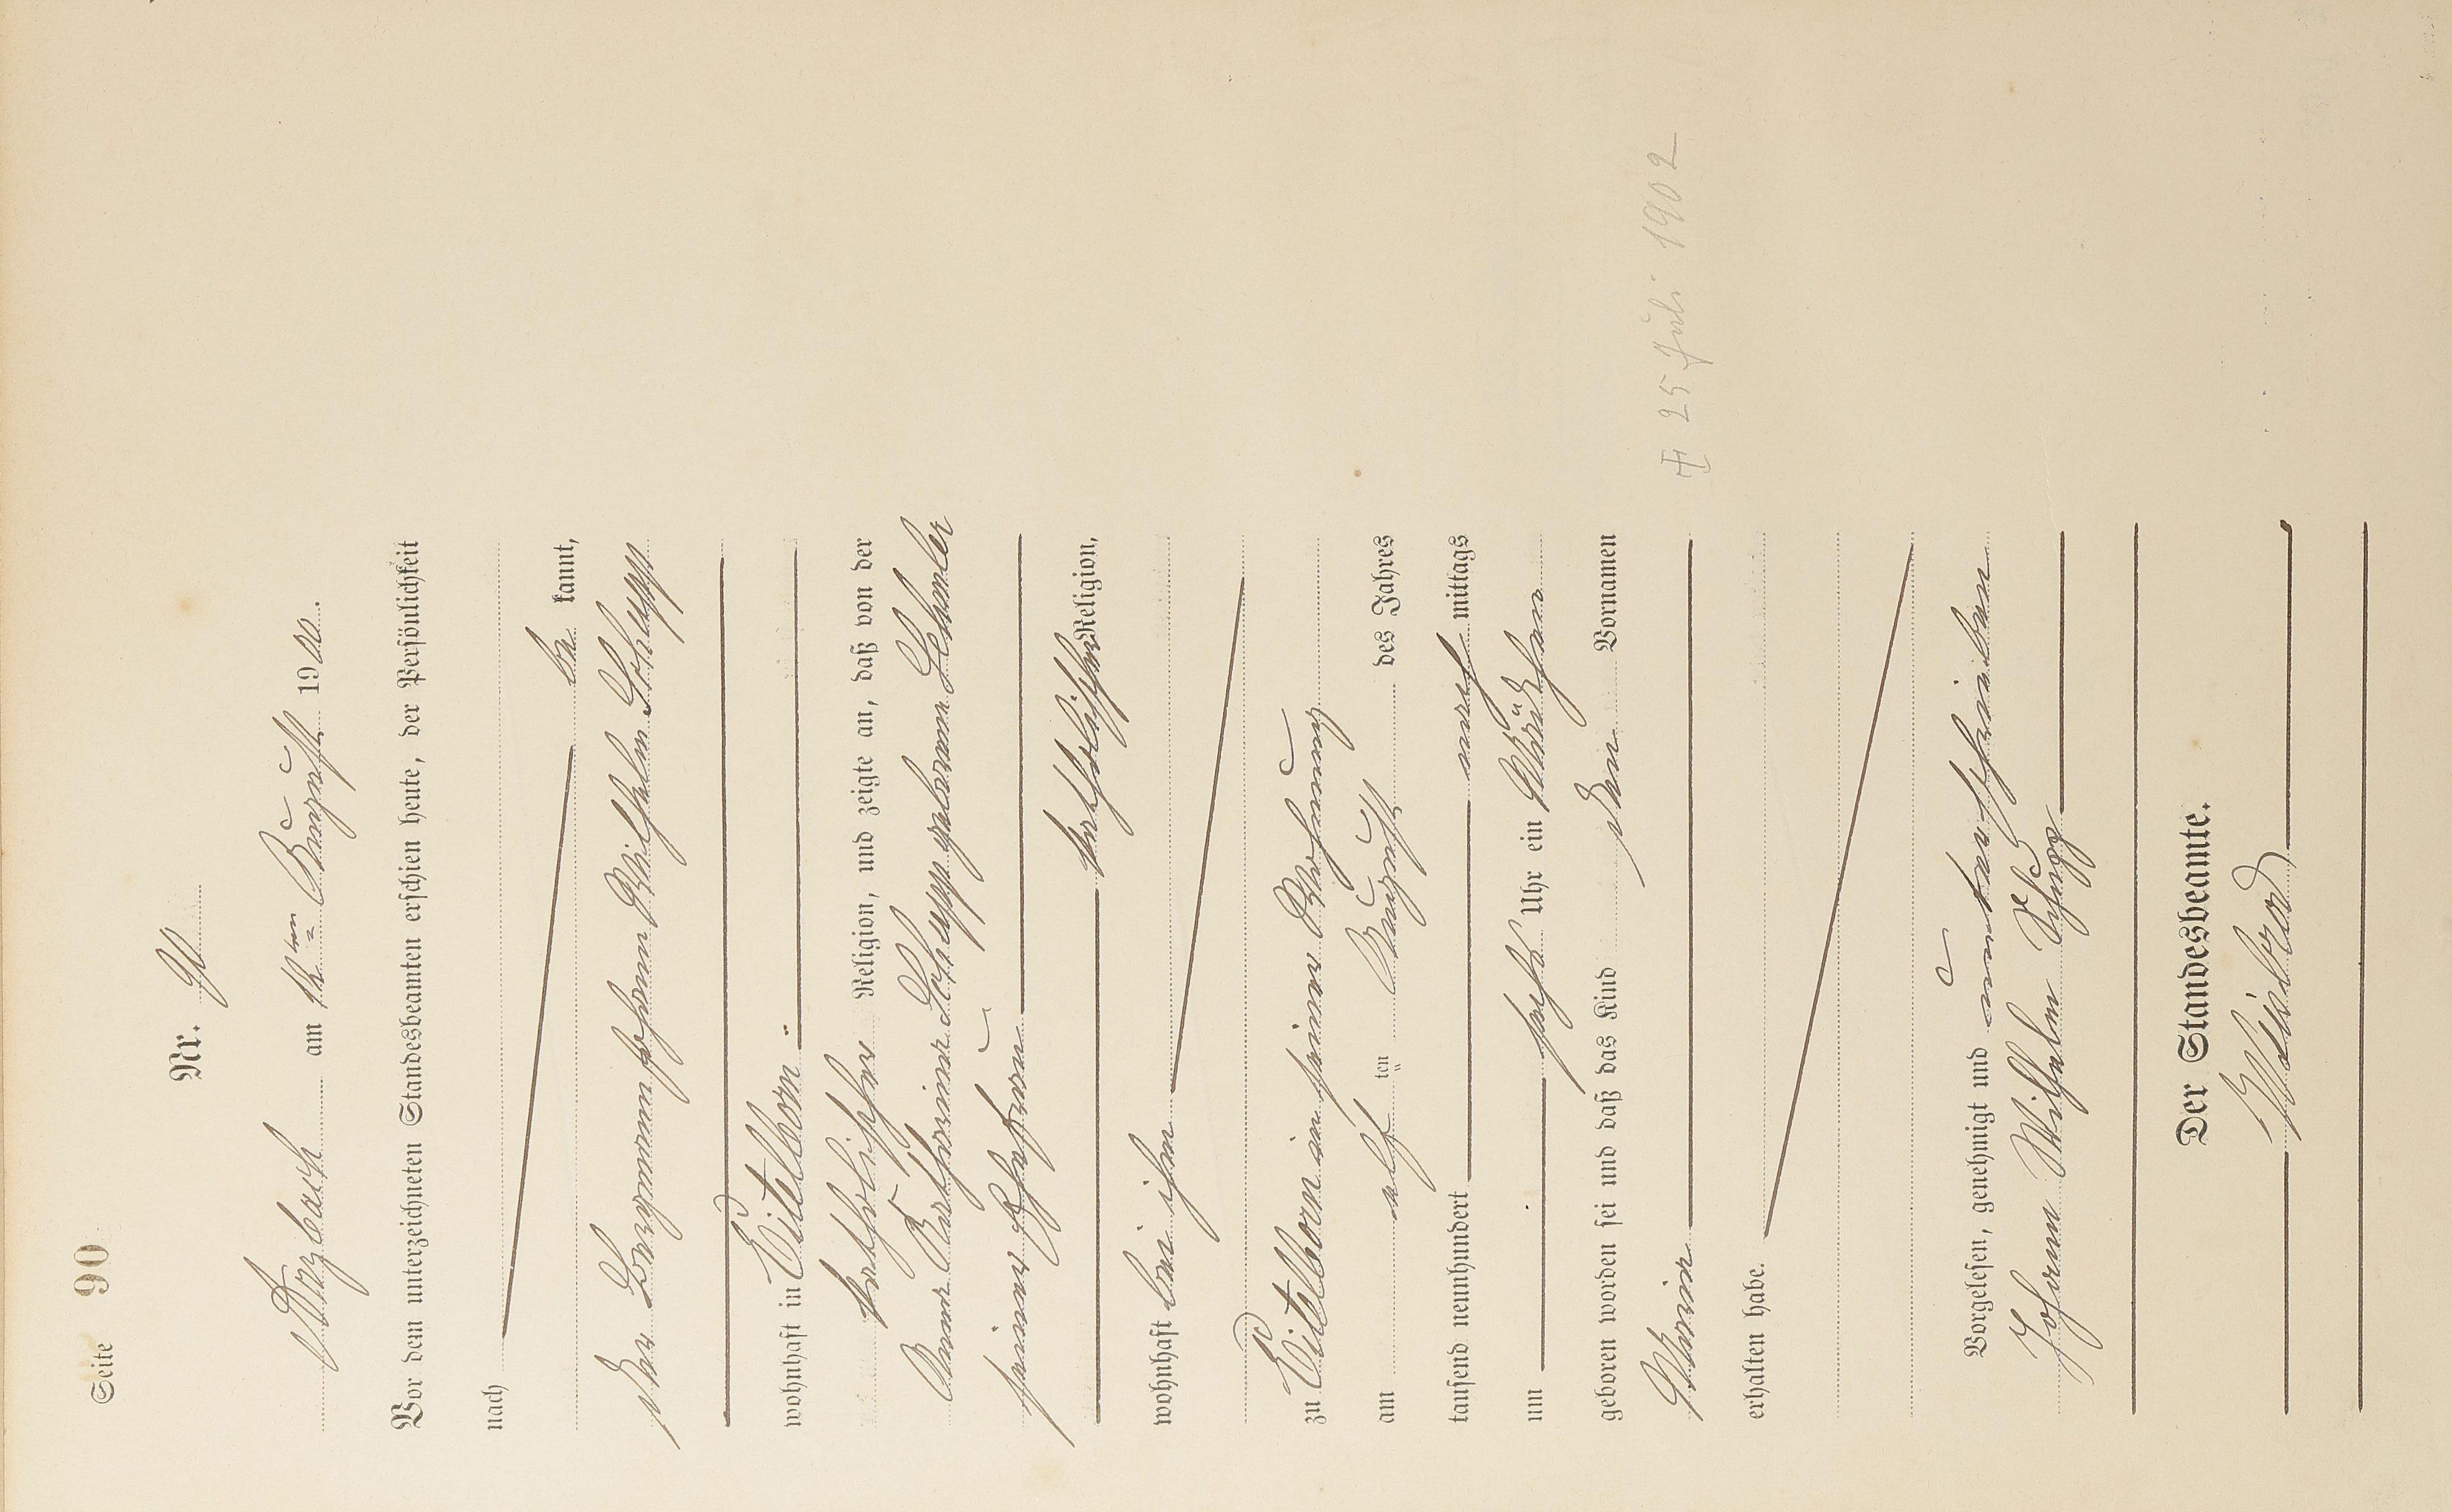 Seite 90
Nr. 90
Arzbach am 12ten August 1900.
Vor dem unterzeichneten Standesbeamten erschien heute, der Persönlichkeit
nach
be kannt,
der Bergmann Johann Wilhelm Schupp
wohnhaft in Eitelborn
katholischer Religion, und zeigte an, daß von der
Anna Katharina Schupp geborene Gebender
seiner Ehefrau
katholischer Religion,
wohnhaft bei ihm
zu Eitelborn in seiner Wohnung
am elf ten August des Jahres
tausend neunhundert nach mittags
um sechs Uhr ein Mädchen
geboren worden sei und daß das Kind den Vornamen
Maria
erhalten habe.
Vorgelesen, genehmigt und unterschrieben
Johann Wilhelm Schupp
Der Standesbeamte.
✝ 25 Juli 1902